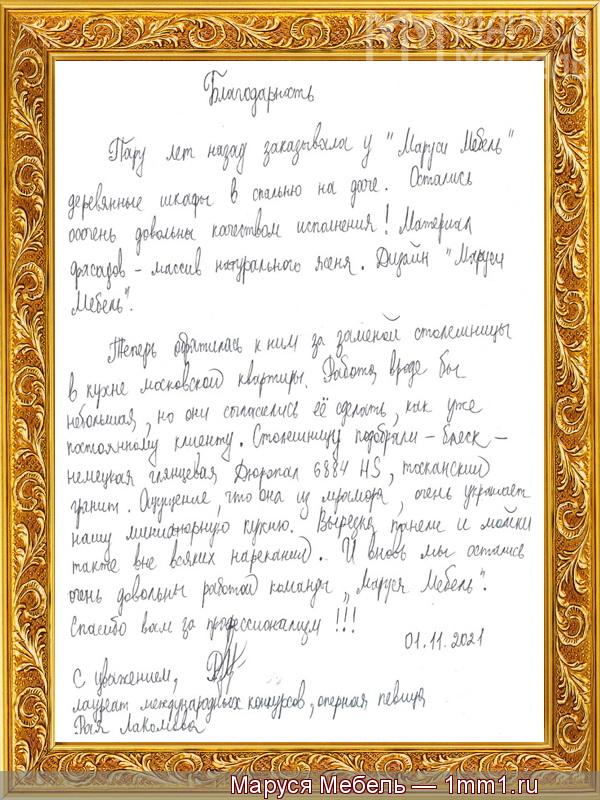 Благодарность
Пару лет назад заказывала у "Маруси Мебель"
деревянные шкафы в спальню на даче. Остались
ооочень довольны качеством исполнения! Материал
фасадов - массив натурального ясеня. Дизайн "Маруси
Мебель".
Теперь обратилась к ним за заменой столешницы
в кухне московской квартиры. Работа, вроде бы
небольшая, но они согласились её сделать, как уже
постоянному клиенту. Столешницу подобрали - блеск -
немецкая глянцевая Дюропал 6884 HS, тосканский
гранит. Ощущение, что она из мрамора, очень украшает
нашу миниатюрную кухню. Вырезка, панели и мойки
также вне всяких нареканий. И вновь мы остались
очень довольны работой команды „Маруся Мебель".
Спасибо вам за профессионализм !!!
01.11.2021
С уважением,
лауреат международных конкурсов, оперная певица
Маруся Мебель — 1mm1.ru